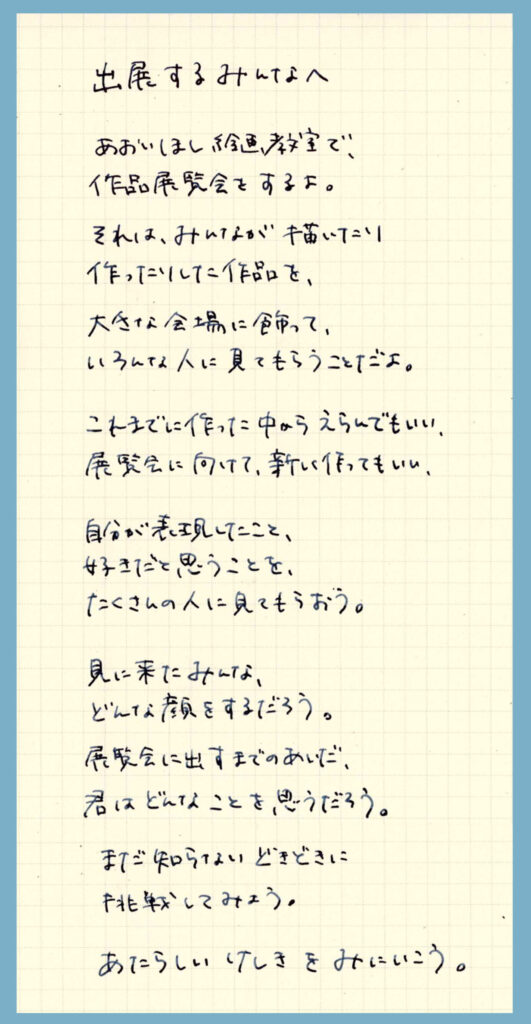 出展するみんなへ
あおいほし絵画教室で、
作品展覧会をするよ。
それは、みんなが描いたり
作ったりした作品を、
大きな会場に飾って、
いろんな人に見てもらうことだよ。
これまでに作った中からえらんでもいい、
展覧会に向けて、新しく作ってもいい、
自分が表現したこと、
好きだと思うことを、
たくさんの人に見てもらおう。
見に来たみんな、
どんな顔をするだろう。
展覧会に出すまでのあいだ、
君はどんなことを思うだろう。
まだ知らないどきどきに
挑戦してみよう。
あたらしいけしきをみにいこう。